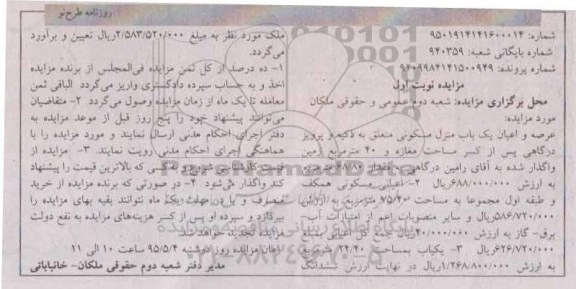 روزنامه طرح‌نو
شماره: ۹۵۰۱۹۱۴۱۴۱۶۰۰۰۱۴
شماره بایگانی شعبه: ۹۴۰۳۵۹
شماره پرونده: ۹۴۰۹۹۸۴۱۴۱۵۰۰۹۴۹
مزایده نوبت اول
محل برگزاری مزایده: شعبه دوم عمومی و حقوقی ملکان
مورد مزایده:
عرصه و اعیان یک باب منزل مسکونی متعلق به ذکیه و پرویز
درگاهی پس از کسر مساحت مغازه و ۴۰ مترمربع زمین
واگذار شده به آقای رامین درگاهی به مقدار
به ارزش ۶۸۸/۰۰۰/۰۰۰ریال ۲- اعیانی مسکونی همکف
و طبقه اول مجموعا به مساحت ۷۵/۴۰ مترمربع به ارزش
۵۸۶/۷۲۰/۰۰۰ریال و سایر منصوبات اعم از امتیازات آب-
برق- گاز به ارزش ۴۰/۰۰۰/۰۰۰ریال جمع کل اعیانی مبلغ
۶۲۶/۷۲۰/۰۰۰ریال ۳- یکباب بمساحت ۲۲/۴۰ مترمربع
به ارزش ۱/۲۶۸/۸۰۰/۰۰۰ریال در نهایت ارزش ششدانگ
ملک مورد نظر به مبلغ ۲/۵۸۳/۵۲۰/۰۰۰ریال تعیین و برآورد
می‌گردد.
۱- ده درصد از کل ثمن مزایده فی‌المجلس از برنده مزایده
اخذ و به حساب سپرده دادگستری واریز می‌گردد الباقی ثمن
معامله تا یک ماه از زمان مزایده وصول می‌گردد ۲- متقاضیان
می‌توانند پیشنهاد خود را پنج روز قبل از موعد مزایده به
دفتر اجرای احکام مدنی ارسال نمایند و مورد مزایده را با
هماهنگی اجرای احکام مدنی رویت نمایند. ۳- مزایده از
قیمت کارشناسی شروع و به کسی که بالاترین قیمت را پیشنهاد
کند واگذار می‌شود ۴- در صورتی که برنده مزایده از خرید
منصرف و یا در مهلت یک ماه نتوانند بقیه بهای مزایده را
بپردازد و سپرده او پس از کسر هزینه‌های مزایده به نفع دولت
مزایده تجدید خواهد شد
زمان مزایده روز دوشنبه ۹۵/۵/۴ ساعت ۱۰ الی ۱۱
مدیر دفتر شعبه دوم حقوقی ملکان- خانبابائی